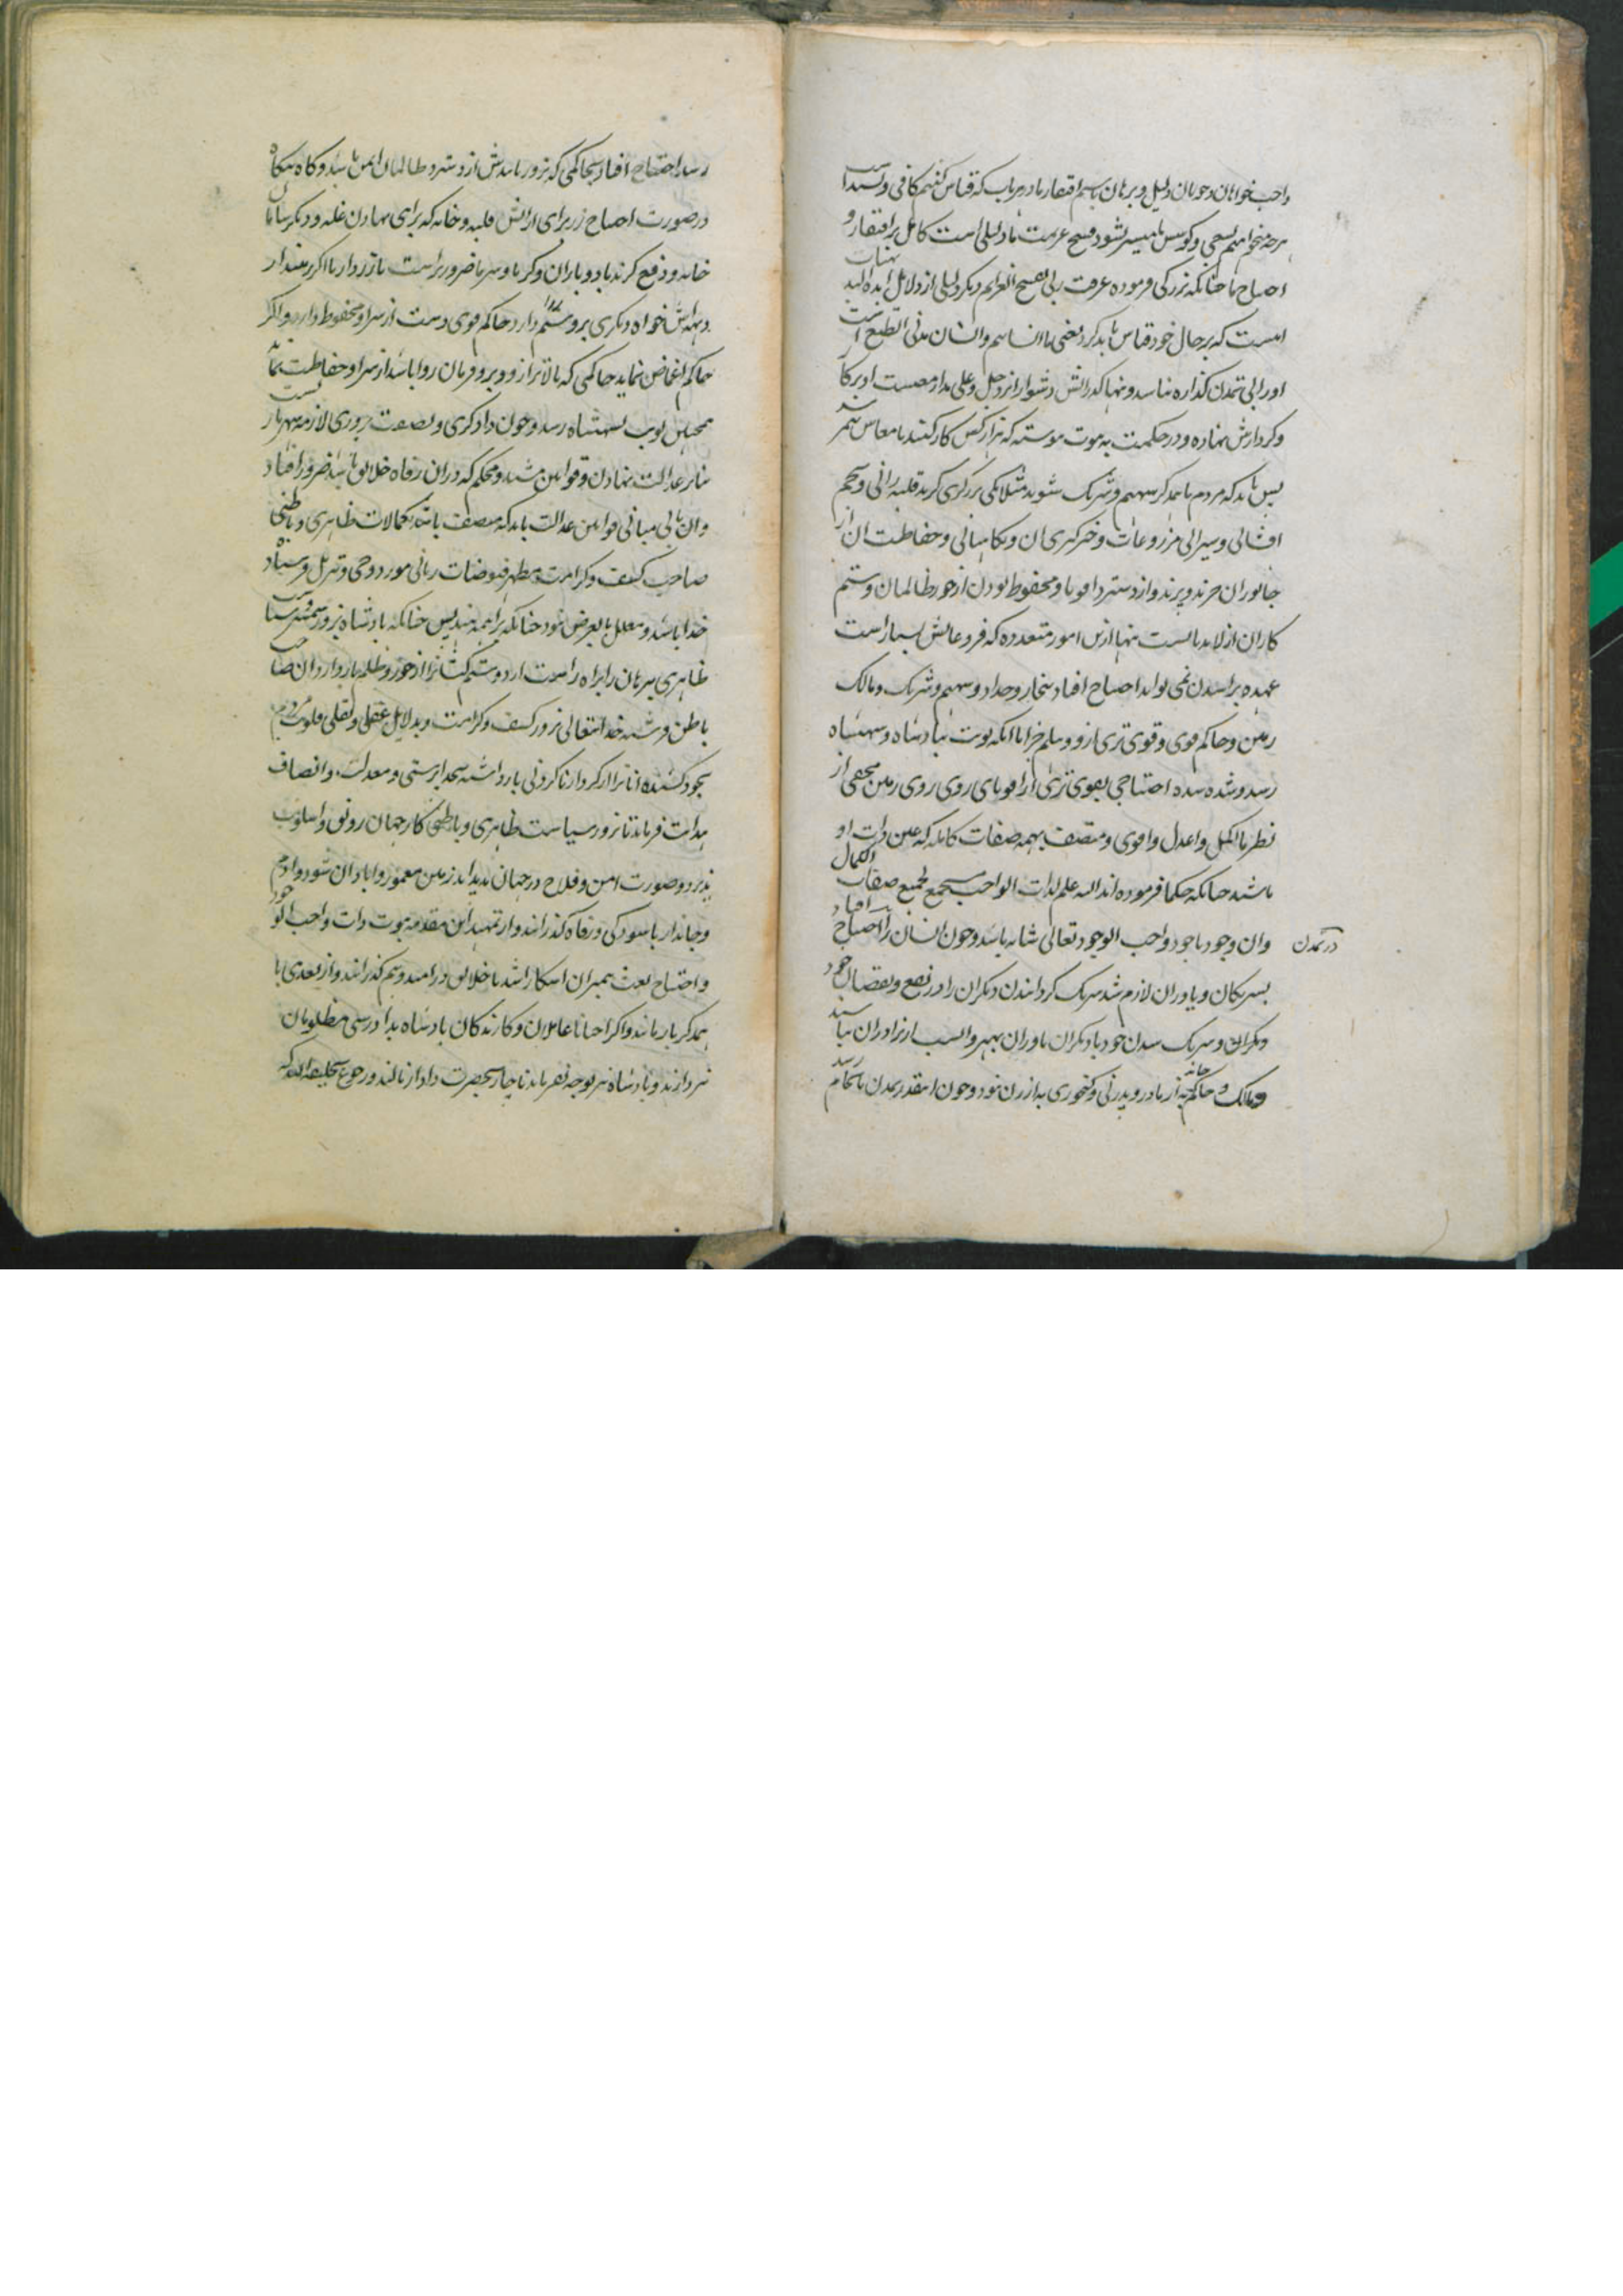 واجب خواهان و جویان دلیل و برهان باسم افتقار ما در هر باب که قیاس کنیم کافی و بسند است
هرچه میخواهیم بسعی و کوشش ما میسر نشود فسخ عزیمت ما دلیلی است کامل بر افتقار و
احتیاج ما چنانکه بزرگی فرموده عرفت ربی بفسخ العزایم دیگر دلیلی از دلایل
است که بر حال خود قیاس باید کرد یعنی ما انسانیم و انسان مدنی الطبع است
او را بی تمدن گذاره نباشد و تنها گذرانش دشوار ایزد جل و علی مدار معیشت او بر کار
و کردارش نهاده و در حکمت به ثبوت پیوسته که هزار کس کار کنند تا معاش
پس باید که مردم با همدگر سهیم و شریک شوند مثلا یکی برزگری کرده قلبه رانی و تخم
افشانی و سیرابی مزروعات و خبرگیری آن و نگاهبانی و حفاظت آن از
جانوران چرنده و پرنده و از دستبرد اقویا و محفوظ بودن از جور ظالمان و ستم
کاران از لابد بایست تنها ازین امور متعدده که فروعاتش بسیار است
عهده بر آمدن نمی تواند احتیاج افتاد بنجار و حداد و سهیم و شریک و مالک
زمین و حاکم قوی و قوی تری ازو و هلم جرا تا آنکه نوبت بپادشاه و شهنشاه
رسد و شده شده احتیاجی بقوی تری از اقویای روی زمین مخفی از
نظر ما اکمل و اعدل و اقوی و متصف بهمه صفات کامله که عین ذات او
باشد چنانکه حکما فرموده اند الله علم لذات الواجب مستجمع لجمیع صفات الکمال
و آن وجود با جود واجب الوجود تعالی شانه باشد و چون انسان را احتیاج افتاد
در تمدن
بشریکان و یاوران لازم شد شریک گردانیدن دیگران را در نفع و نقصان خود
دیگران و شریک شدن خود با دیگران یاوران بهتر و انسب از برادران نباشد
و مالک و حاکم خانه به از مادر و پدر نی و کنجوری به از زن نبود و چون اینقدر تمدن بانجام رسد
رسد احتیاج افتاد بحاکمی که بزور بازویش از دستبرد ظالمان ایمن باشد و گاه بیگاه
در صورت احتیاج زر برای افزایش قلبه و خانه که برای نهادن غله و دیگر سامان
خانه و دفع گزند باد و باران و گرما و سرما ضرور است باز زردار ما اگر زمیندار
و همسایه اش خواه دیگری برو ستم روا دارد حاکم قوی دست از شر او محفوظ دارد و اگر
حاکم اغماض نماید حاکمی که بالاتر از او و برو فرمان روا باشد از شر او حفاظت نماید
همچنین نوبت بشهنشاه رسد و چون دادگری و نصفت پروری لازمه شهریاریست
بنابر عدالت نهادن و قوانین مشید و محکم که در آن رفاه خلایق باشد ضرور افتاد
و آن بانی مبانی قوانین عدالت باید که متصف باشد بکمالات ظاهری و باطنی
صاحب کشف و کرامت مظهر فیوضات ربانی مورد وحی و تنزیل فرستاده
خدا باشد و معلل بالغرض نبود چنانکه براهمه هندیس چنانکه پادشاه بزور شمشیر و سیاست
ظاهری بیرهان را براه راست آرد و ستم کشانرا از جور و ظلم باز دارد آن صاحب
باطن فرستنده خدا تعالی بزور کشف و کرامت و بدلایل عقلی و نقلی قلوب مردم
بخود کشنده آنانرا از کردار ناکردنی باز داشته بخدا پرستی و معدلت و انصاف
هدایت فرماید تا بزور سیاست ظاهری و باطنی کار جهان رونق و اسلوب
پذیرد و صورت امن و فلاح در جهان پدید آید زمین معمور و آبادان شود و آدم
و جاندار باسودگی و رفاه گذرانند و از تمهید این مقدمه ثبوت ذات واجب الوجود
و احتیاج بعث پیمبران آشکارا شد تا خلایق در امید و بیم گذرانند و از تعدی با
همدگر باز مانند و اگر احیانا عاملان و کارندگان پادشاه بدادرسی مظلومان
نپردازند و پادشاه نیز توجه نفرماید ناچار بحضرت دادار نالند و رجوع بخلیفة الله که